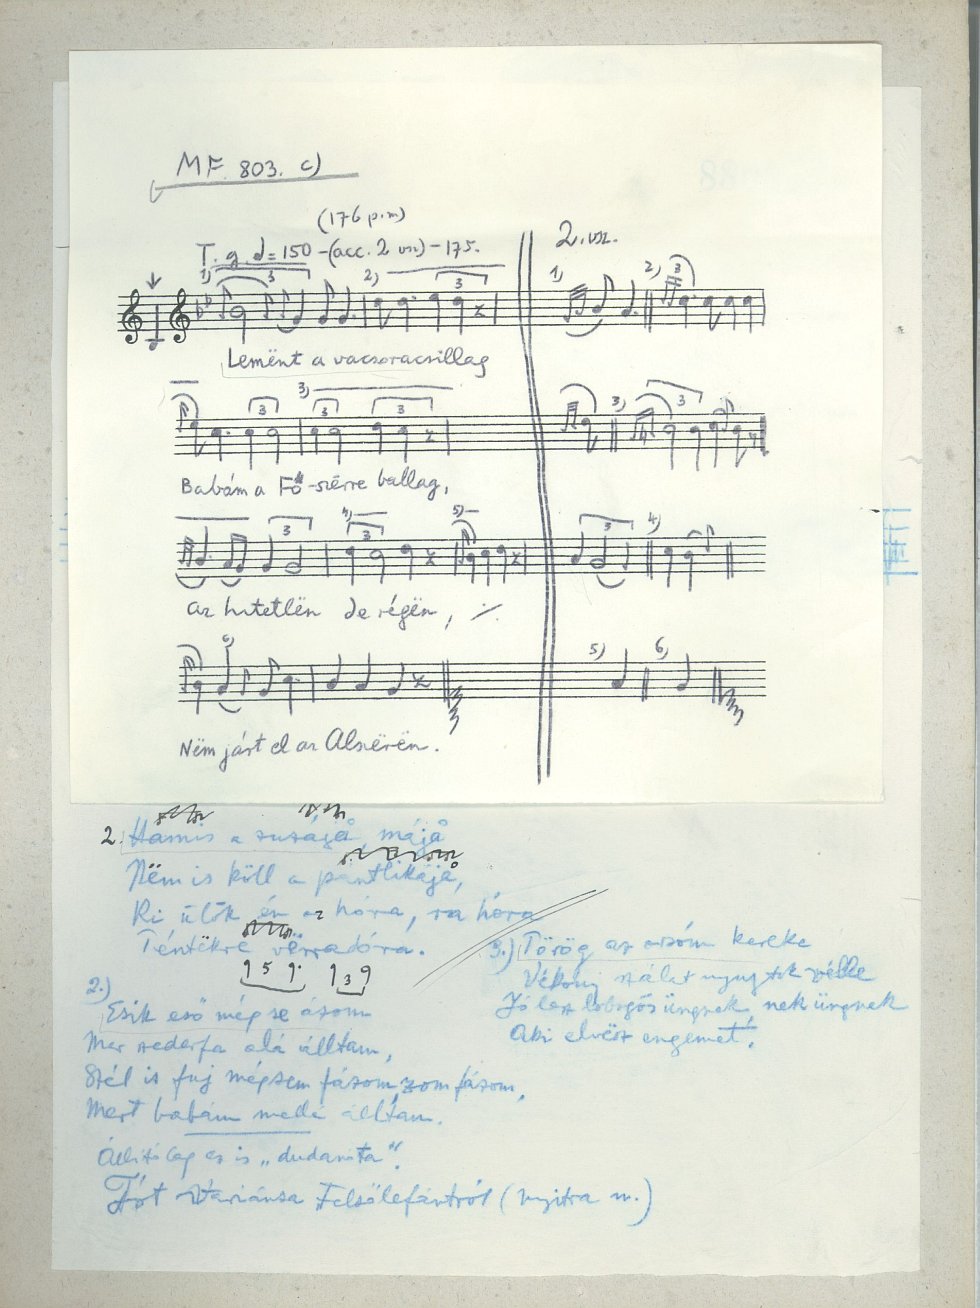 MF. 803. c)
(176 p.m)
T. g. = 150 - (acc. 2 vsz) - 175.
2. vsz.
1) 3 2) 3
1) 2) 3
Lemënt a vacsoracsillag
3) 3 3 3
3) 3
Babám a Fő-szérre ballag,
3 4) 3 5)
3 4)
az hitetlën de régën,
6)
5) 6)
Nëm járt el az Alszérën.
2. Hamis a májå
Nëm is köll a pántlikájå,
Ki ülök én a hóra, ra hóra
Téntëkre vérradóra.
5 3
3.) Törög az orsóm kereke
Vékony szálat nyujtok vélle
Jó lesz lobogós üngnek, nek üngnek
Aki elvësz engemet.
2.)
Esik eső mégse ázom
Mer szederfa alá álltam,
Szél is fuj mégsem fázom, zom fázom,
Mert babám mellé álltam.
Állitólag ez is „dudanóta".
Tót variánsa Felsőlefántról (Nyitra m.)